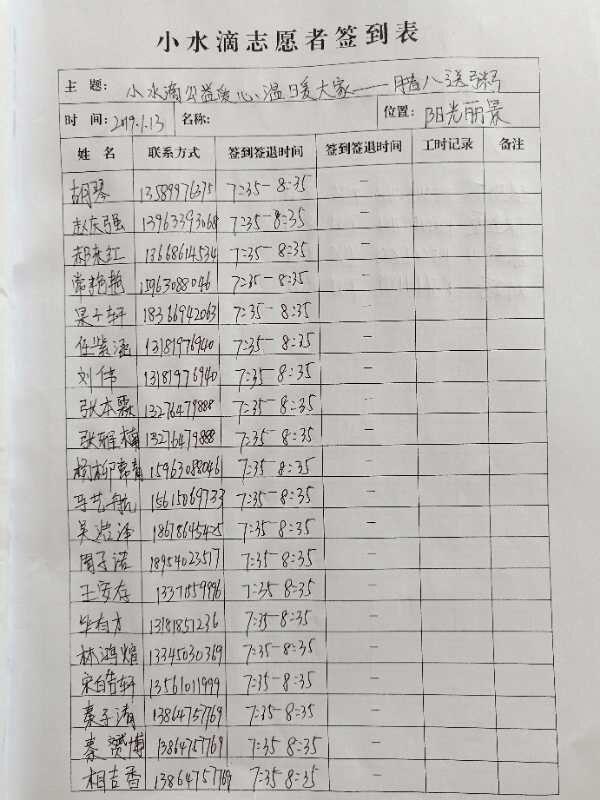 小水滴志愿者签到表
主 题: 小水滴公益爱心,温暖大家——腊八送粥
时 间: 2019.1.13 名称: 位置: 阳光丽景
姓 名 联系方式 签到签退时间 签到签退时间 工时记录 备注
胡琴 13589976375 7:35-8:35 —
赵庆强 13963393068 7:35-8:35 —
郝来红 13668614534 7:35-8:35 —
常艳艳 15963088046 7:35-8:35 —
杲子轩 18366942063 7:35-8:35 —
任紫涵 13181976940 7:35-8:35 —
刘伟 13181976940 7:35-8:35 —
张本霖 13276479888 7:35-8:35 —
张雅楠 13276479888 7:35-8:35 —
杨柳常青 15963088046 7:35-8:35 —
马艺航 15615069733 7:35-8:35 —
吴浩泽 18678645425 7:35-8:35 —
周子诺 18954023517 7:35-8:35 —
王安存 7:35-8:35 —
7:35-8:35 —
林鸿煊 13345030369 7:35-8:35 —
宋皓轩 13561011999 7:35-8:35 —
秦子清 13864757769 7:35-8:35 —
秦赟博 13864757769 7:35-8:35 —
相吉香 13864757769 7:35-8:35 —